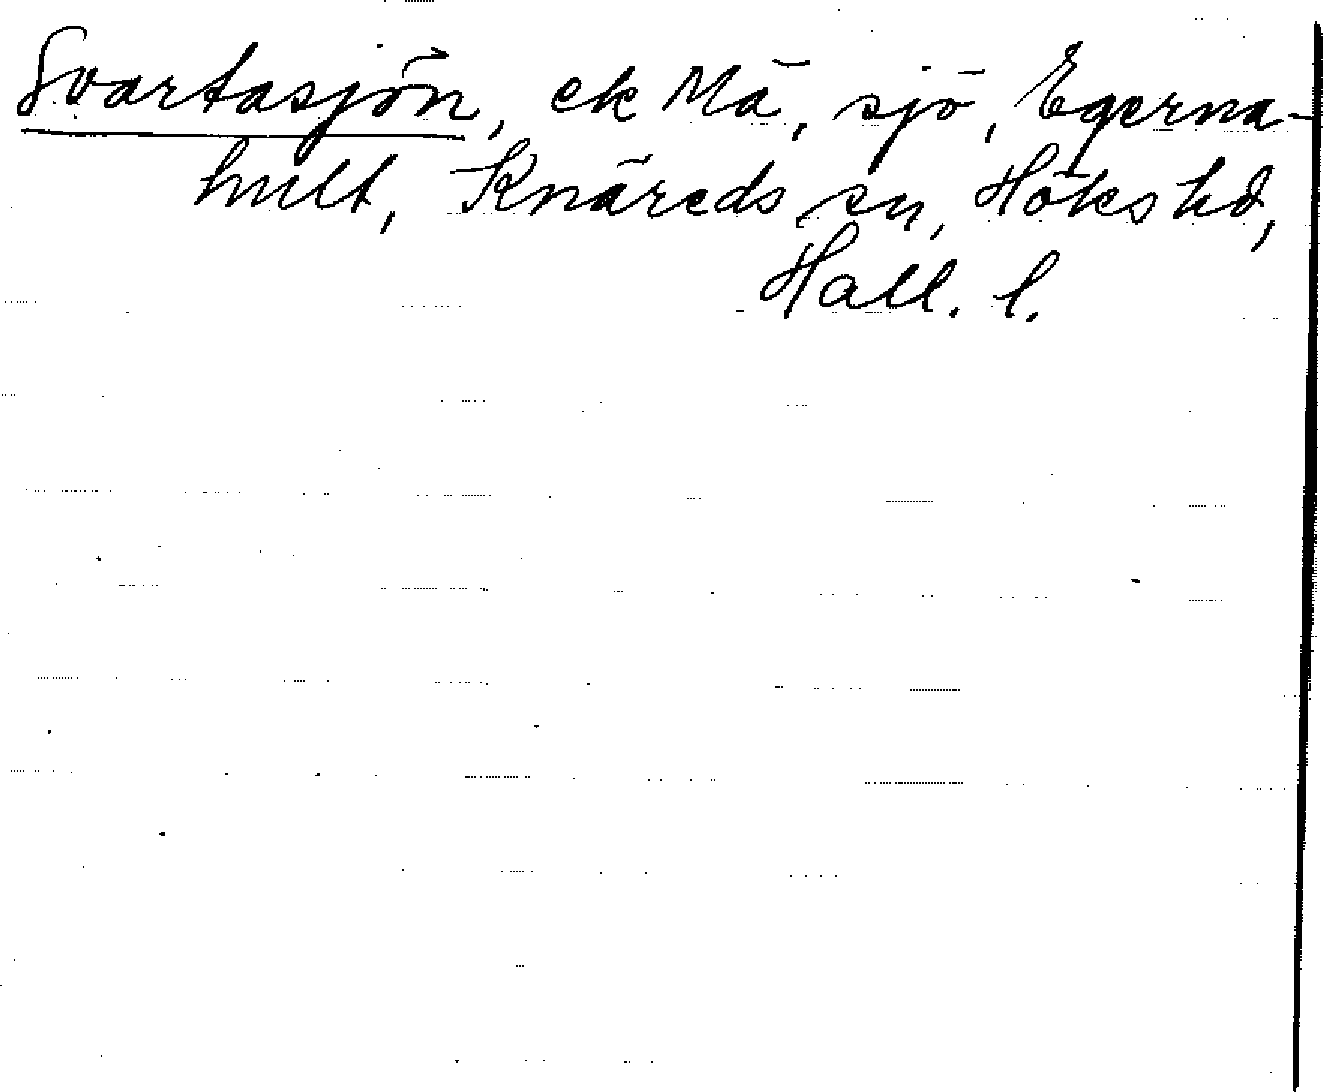 Svartasjön, ek Mä, sjö, Egerna-
hult, Knäreds sn, Höks hd,
Hall. l.